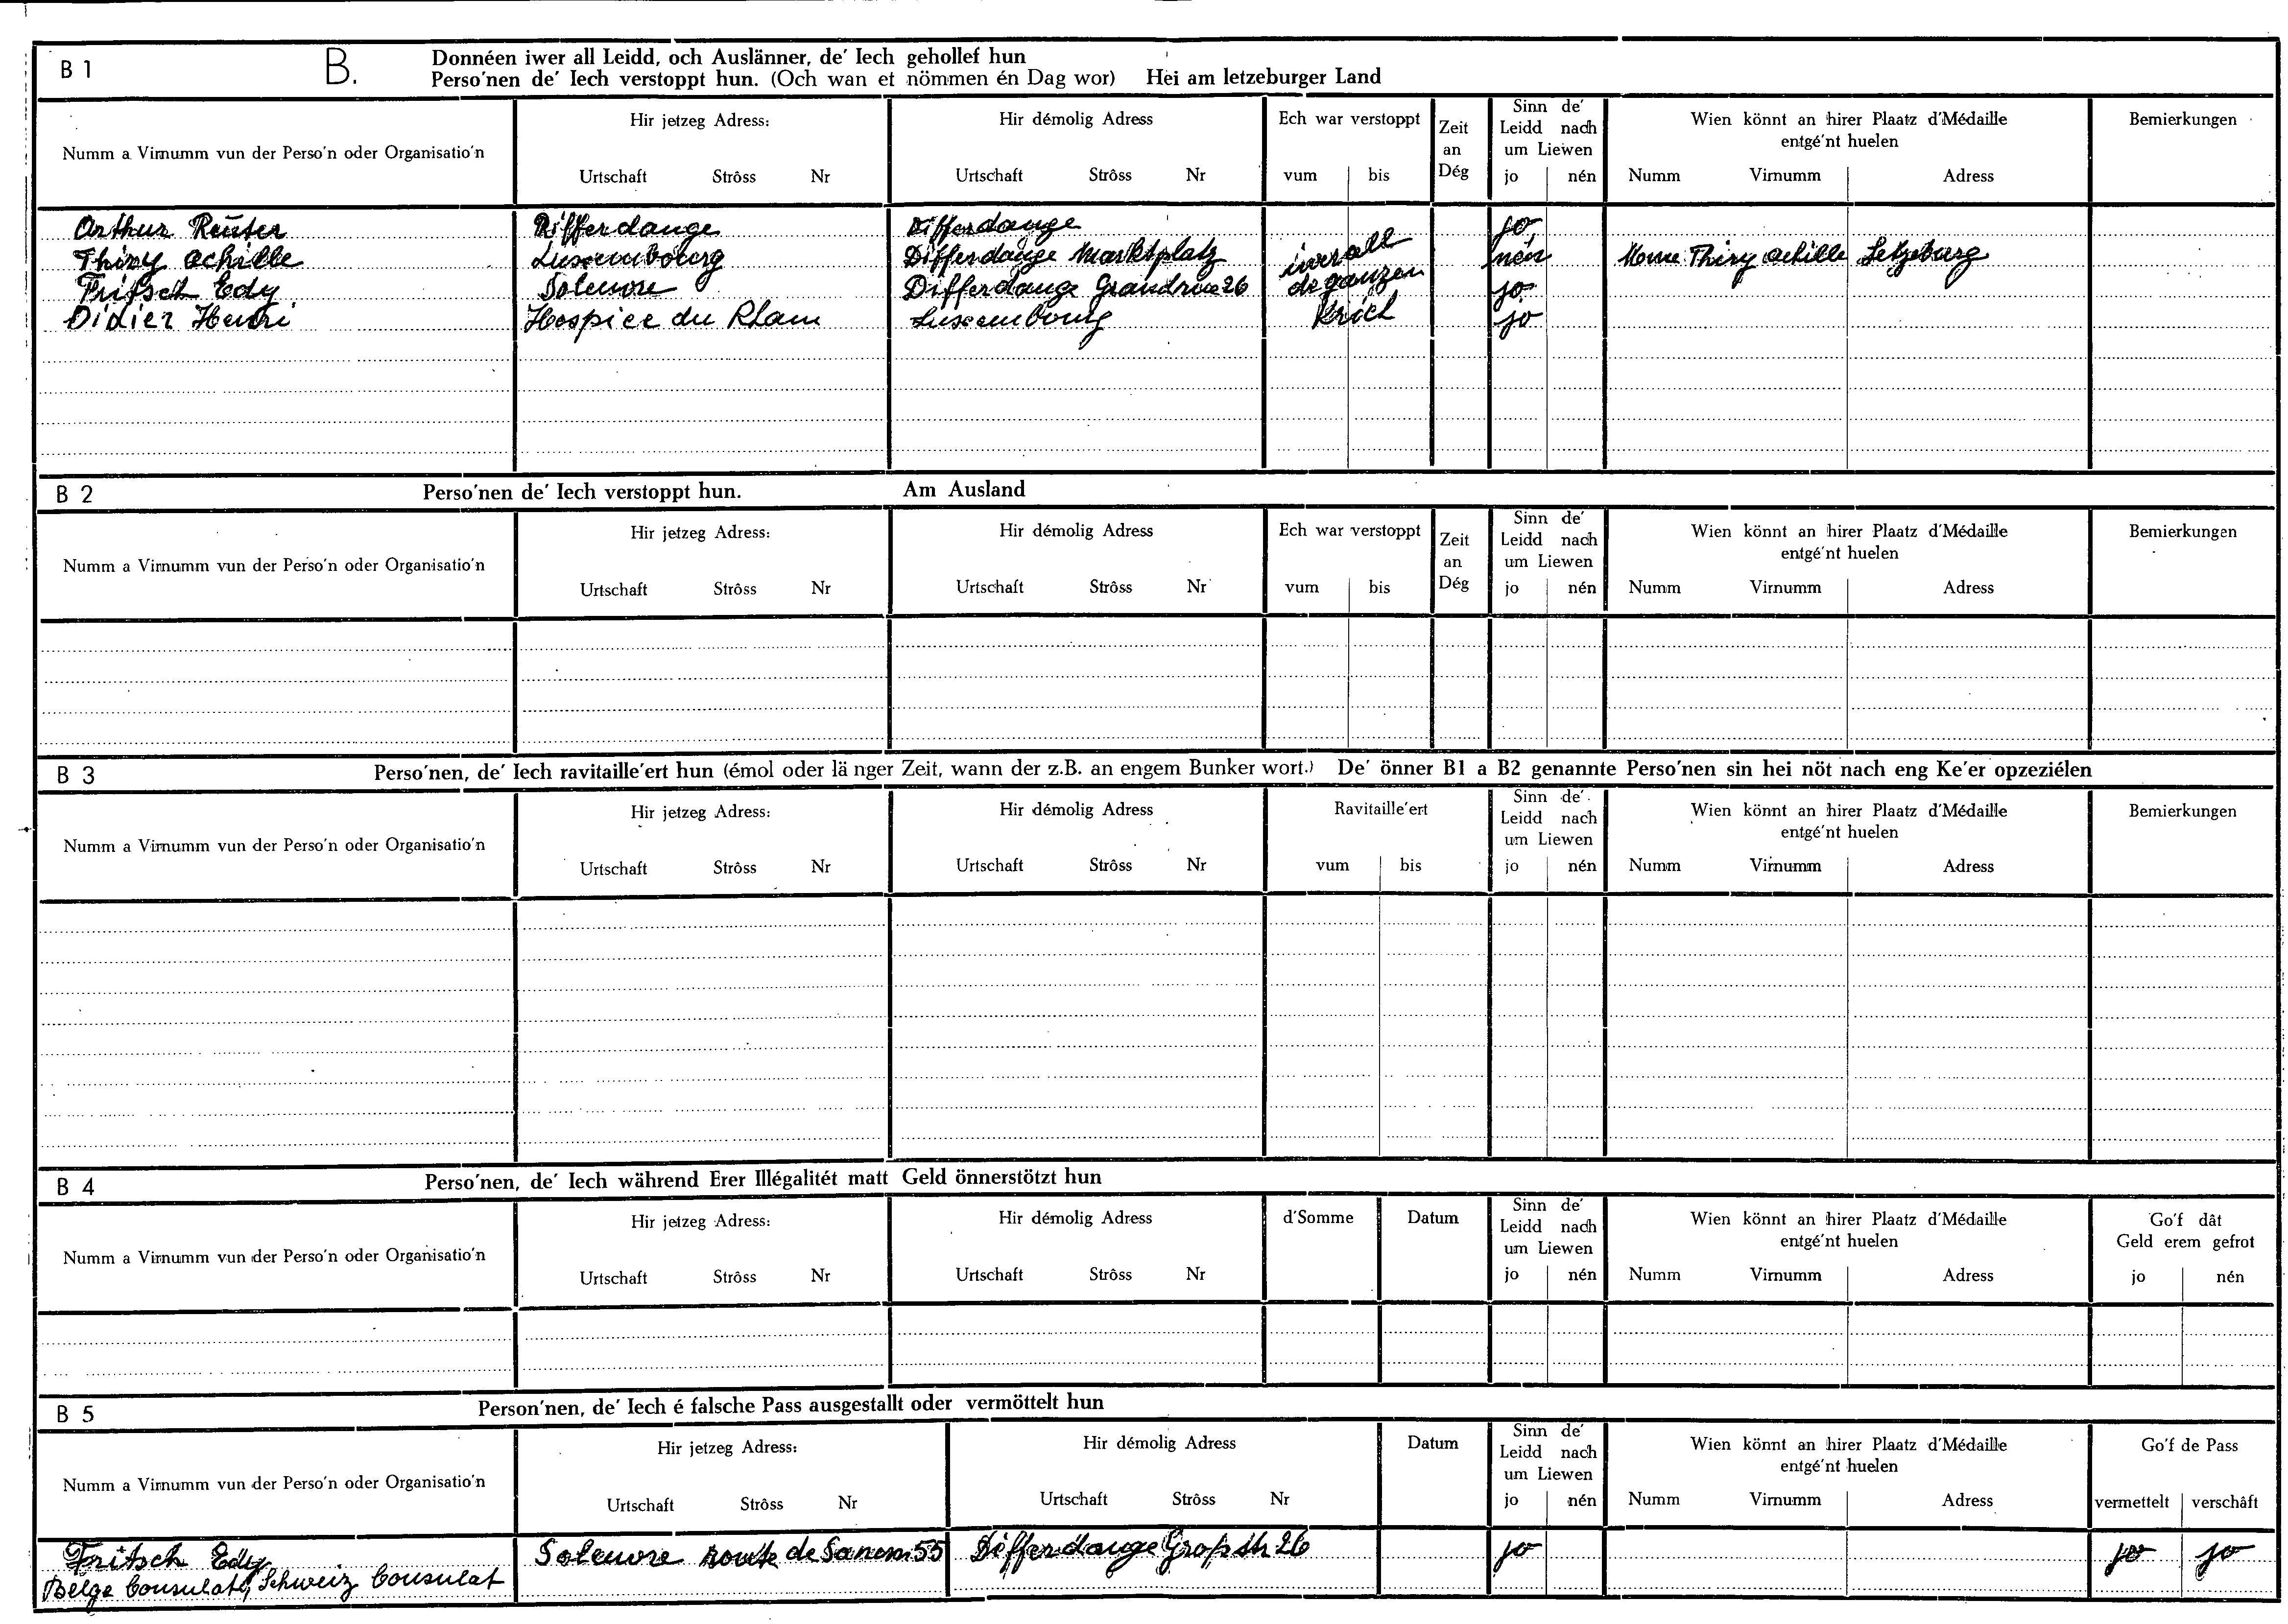 B 1 B. Donnéen iwer all Leidd, och Auslänner, de' Iech gehollef hun
Perso'nen de' Iech verstoppt hun. (Och wan et nömmen én Dag wor) Hei am letzeburger Land
Numm a Virnumm vun der Perso'n oder Organisatio'n
Hir jetzeg Adress:
Urtschaft Strôss Nr
Hir démolig Adress
Urtschaft Strôss Nr
Ech war verstoppt
vum bis
Zeit
an
Dég
Sinn de'
Leidd nach
um Liewen
jo nén
Wien könnt an hirer Plaatz d'Médaille
entgé'nt huelen
Numm Virnumm Adress
Bemierkungen
Arthur Reuter Differdange Differdange jo
Thiry Achille Luxembourg Differdange Marktplatz iwerall nén Mme Thiry Achille Letzeburg
Fritsch Edy Soleuvre Differdange Grandrue 26 de ganzen jo
Didier Henri Hospice du Rham Luxembourg Krich jo
B 2 Perso'nen de' Iech verstoppt hun. Am Ausland
Numm a Virnumm vun der Perso'n oder Organisatio'n
Hir jetzeg Adress:
Urtschaft Strôss Nr
Hir démolig Adress
Urtschaft Strôss Nr
Ech war verstoppt
vum bis
Zeit
an
Dég
Sinn de'
Leidd nach
um Liewen
jo nén
Wien könnt an hirer Plaatz d'Médaille
entgé'nt huelen
Numm Virnumm Adress
Bemierkungen
B 3 Perso'nen, de' Iech ravitaille'ert hun (émol oder länger Zeit, wann der z.B. an engem Bunker wort.) De' önner B1 a B2 genannte Perso'nen sin hei nöt nach eng Ke'er opzeziélen
Numm a Virnumm vun der Perso'n oder Organisatio'n
Hir jetzeg Adress:
Urtschaft Strôss Nr
Hir démolig Adress
Urtschaft Strôss Nr
Ravitaille'ert
vum bis
Sinn de'
Leidd nach
um Liewen
jo nén
Wien könnt an hirer Plaatz d'Médaille
entgé'nt huelen
Numm Virnumm Adress
Bemierkungen
B 4 Perso'nen, de' Iech während Erer Illégalitét matt Geld önnerstötzt hun
Numm a Virnumm vun der Perso'n oder Organisatio'n
Hir jetzeg Adress:
Urtschaft Strôss Nr
Hir démolig Adress
Urtschaft Strôss Nr
d'Somme
Datum
Sinn de'
Leidd nach
um Liewen
jo nén
Wien könnt an hirer Plaatz d'Médaille
entgé'nt huelen
Numm Virnumm Adress
Go'f dât
Geld erem gefrot
jo nén
B 5 Person'nen, de' Iech é falsche Pass ausgestallt oder vermöttelt hun
Numm a Virnumm vun der Perso'n oder Organisatio'n
Hir jetzeg Adress:
Urtschaft Strôss Nr
Hir démolig Adress
Urtschaft Strôss Nr
Datum
Sinn de'
Leidd nach
um Liewen
jo nén
Wien könnt an hirer Plaatz d'Médaille
entgé'nt huelen
Numm Virnumm Adress
Go'f de Pass
vermettelt verschâft
Fritsch Edy Soleuvre route de Sanem 55 Differdange Großstr 26 jo jo jo
Belge Consulat, Schweiz Consulat